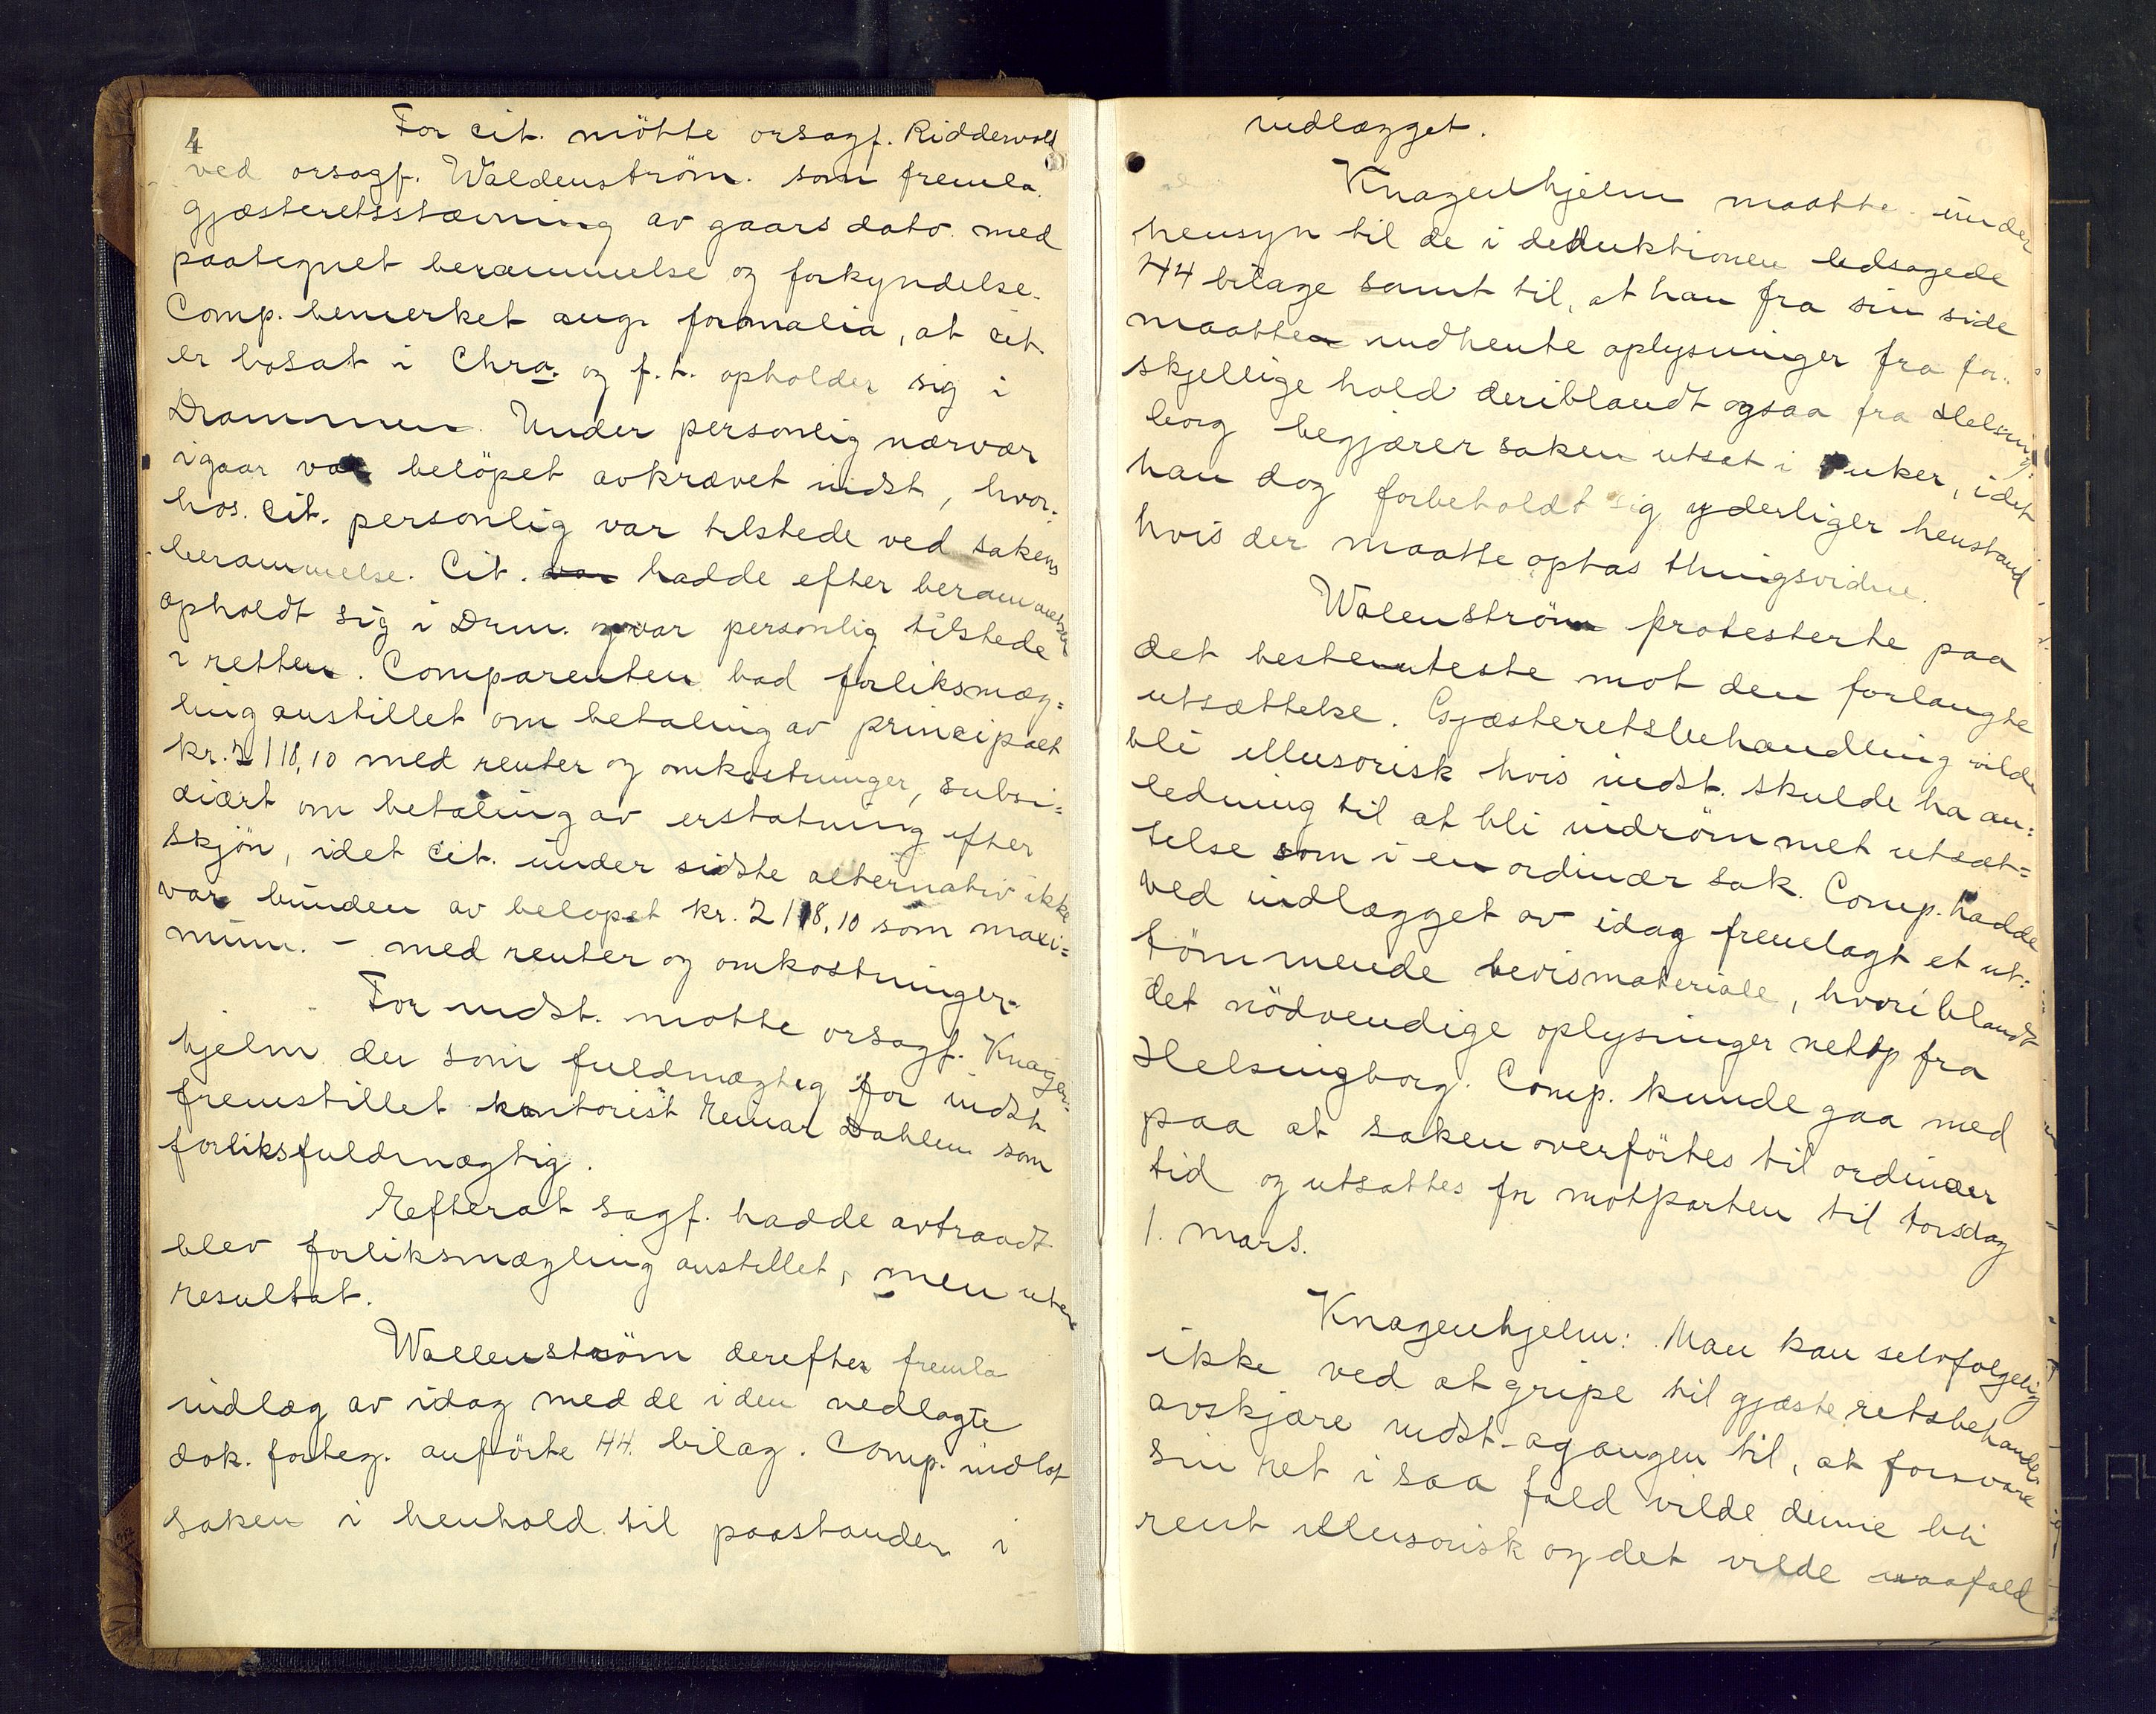 4
For cit. mötte orsagf. Riddervold
ved orsagf. Waldenström. som fremla
gjæsteretsstævning av gaars dato med
paategnet berammelse og forkyndelse.
Comp. bemerket ang. formalia, at cit.
er bosat i Chra. og f.t. opholder sig i
Drammen. Under personlig nærvær
igaar var belöpet avkrævet indst, hvor-
hos. cit. personlig var tilstede ved sakens
berammelse. Cit. var hadde efter berammelsen
opholdt sig i Drm. og var personlig tilstede
i retten. Comparenten bad forliksmæg=
ling anstillet om betaling av principalt
kr. 2118,10 med renter og omkostninger, subsi=
diært om betaling av erstatning efter
skjön, idet cit. under sidste alternativ ikke
var bunden av belöpet kr. 2118,10 som maxi=
mum. - med renter og omkostninger.
For indst. mötte orsagf. Knagen-
hjelm der som fuldmægtig for indst.
fremstillet kontorist Einar Dahlen som
forliksfuldmægtig.
Efterat sagf. hadde avtraadt
blev forliksmægling anstillet, men uten
resultat.
Wallenström derefter fremla
indlæg av idag med de i den vedlagte
dok. forteg. anförte 44 bilag. Comp. indlot
saken i henhold til paastanden i
indlægget.
Knagenhjelm maatte under
hensyn til de i deduktionen ledsagede
44 bilage samt til, at han fra sin side
maatte indhente oplysninger fra for-
skjellige hold deriblandt ogsaa fra Helsing-
borg begjærer saken utsat i uker, idet
han dog forbeholdt sig yderliger henstand
hvis der maatte optas thingsvidne.
Walenström protesterte paa
det bestemteste mot den forlangte
utsættelse. Gjæsteretsbehandling vilde
bli illusorisk hvis indst. skulde ha an=
ledning til at bli indrömmet utsæt=
telse som i en ordinær sak. Comp. hadde
ved indlægget av idag fremlagt et ut=
tömmende bevismateriale, hvoriblandt
det nödvendige oplysninger netop fra
Helsingborg. Comp. kunde gaa med
paa at saken overförtes til ordinær
tid og utsattes for motparten til torsdag
1. mars.
Knagenhjelm: Man kan selvfølgelig
ikke ved at gripe til gjæsteretsbehandl.
avskjære indst. agangen til, at forsvare
sin ret i saa fald vilde denne bli
rent illusorisk og det vilde isaafald